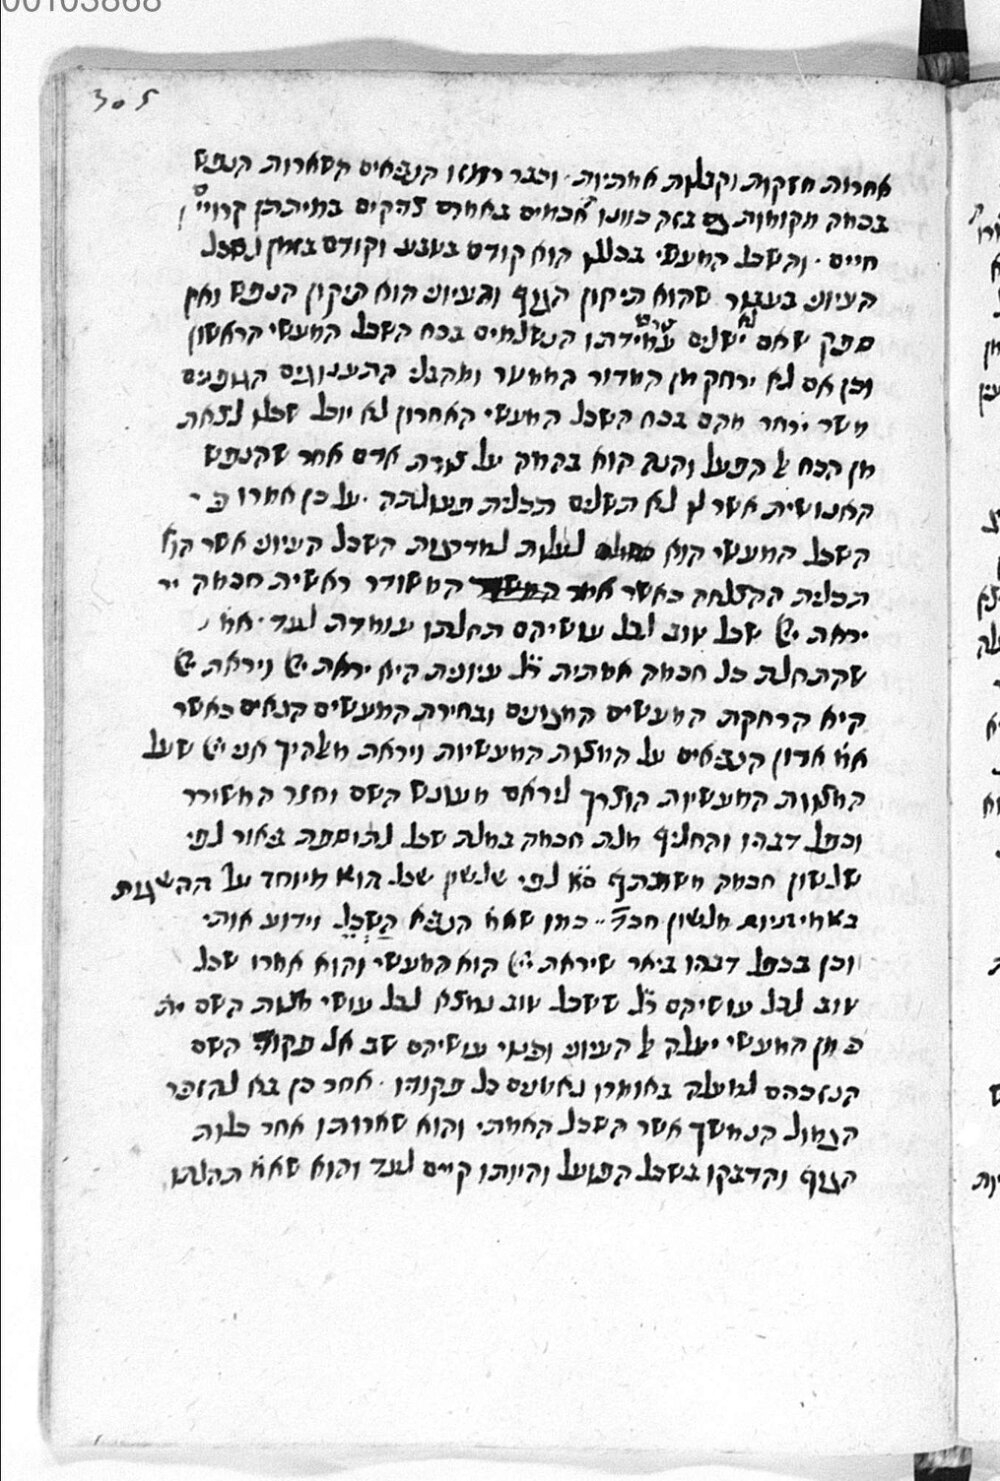 00103868
305
אחרות חזקות וקבלות אמתיות. וכבר רמזו הנביאים השארות הנפש
בכמה מקומות גם בזה כוונו חכמים באמרם צדיקים במיתתן קרויים
חיים. והשכל המעשי בכללו הוא קודם בטבע וקודם בזמן לשכל
העיוני בעבור שהוא תיקון הגוף והעיוני הוא תיקון הנפש ואין
ספק שאם לא ישלים הנשלמים בכח השכל המעשי הראשון
וכן אם לא ירחק מן הסדור המשער ומקבלי התענוגים הגופנים
אשר יזהר מהם בכח השכל המעשי האחרון לא יוכל שכלו לצאת
מן הכח אל הפועל והנה הוא בהמה על צורת אדם אחר שהנפש
האנושית אשר לו לא תשלים תכלית פעולתה. על כן אמרו כי
השכל המעשי הוא לעלות למדרגות השכל העיוני אשר הוא
תכלית ההצלחה כאשר אמר המשורר ראשית חכמה יר
יראת יי שכל טוב לכל עושיהם תהלתו עומדת לעד. אמ
שהתחלת כל חכמה אמתית ר״ל עיונית היא יראת יי ויראת יי
היא הרחקת המעשים המגונים ובחירת המעשים הנאים כאשר
אמ אדון הנביאים על המצות המעשיות ויראת מאלהיך אני יי שעל
המצוות המעשיות הוצרך ליראם מעונש השם וחזר המשורר
וכפל דבריו והחליף מלת חכמה במלת שכל לתוספת באור לפי
שלשון חכמה משתתף לפי שלשון שכל הוא מיוחד על ההשגות
כמו שאמ הנביא הַשְכֵל וידוע אותי
וכן בכפל דבריו ביאר שיראת יי הוא המעשי והוא אמרו שכל
טוב לכל עושיהם ר״ל ששכל טוב נמצא לכל עושי מצות השם ית
כי מן המעשי יעלה אל העיוני וכנוי עושיהם שב אל פקודי השם
הנזכרים למעלה באומרו נאמנים כל פקודיו. אחר כן בא להזכר
הגמול הנמשך אשר השכל האמתי והוא שארותו אחר כלות
הגוף והדבקו בשכל הפועל והיותו קיים לעד והוא שאמ תהלתו